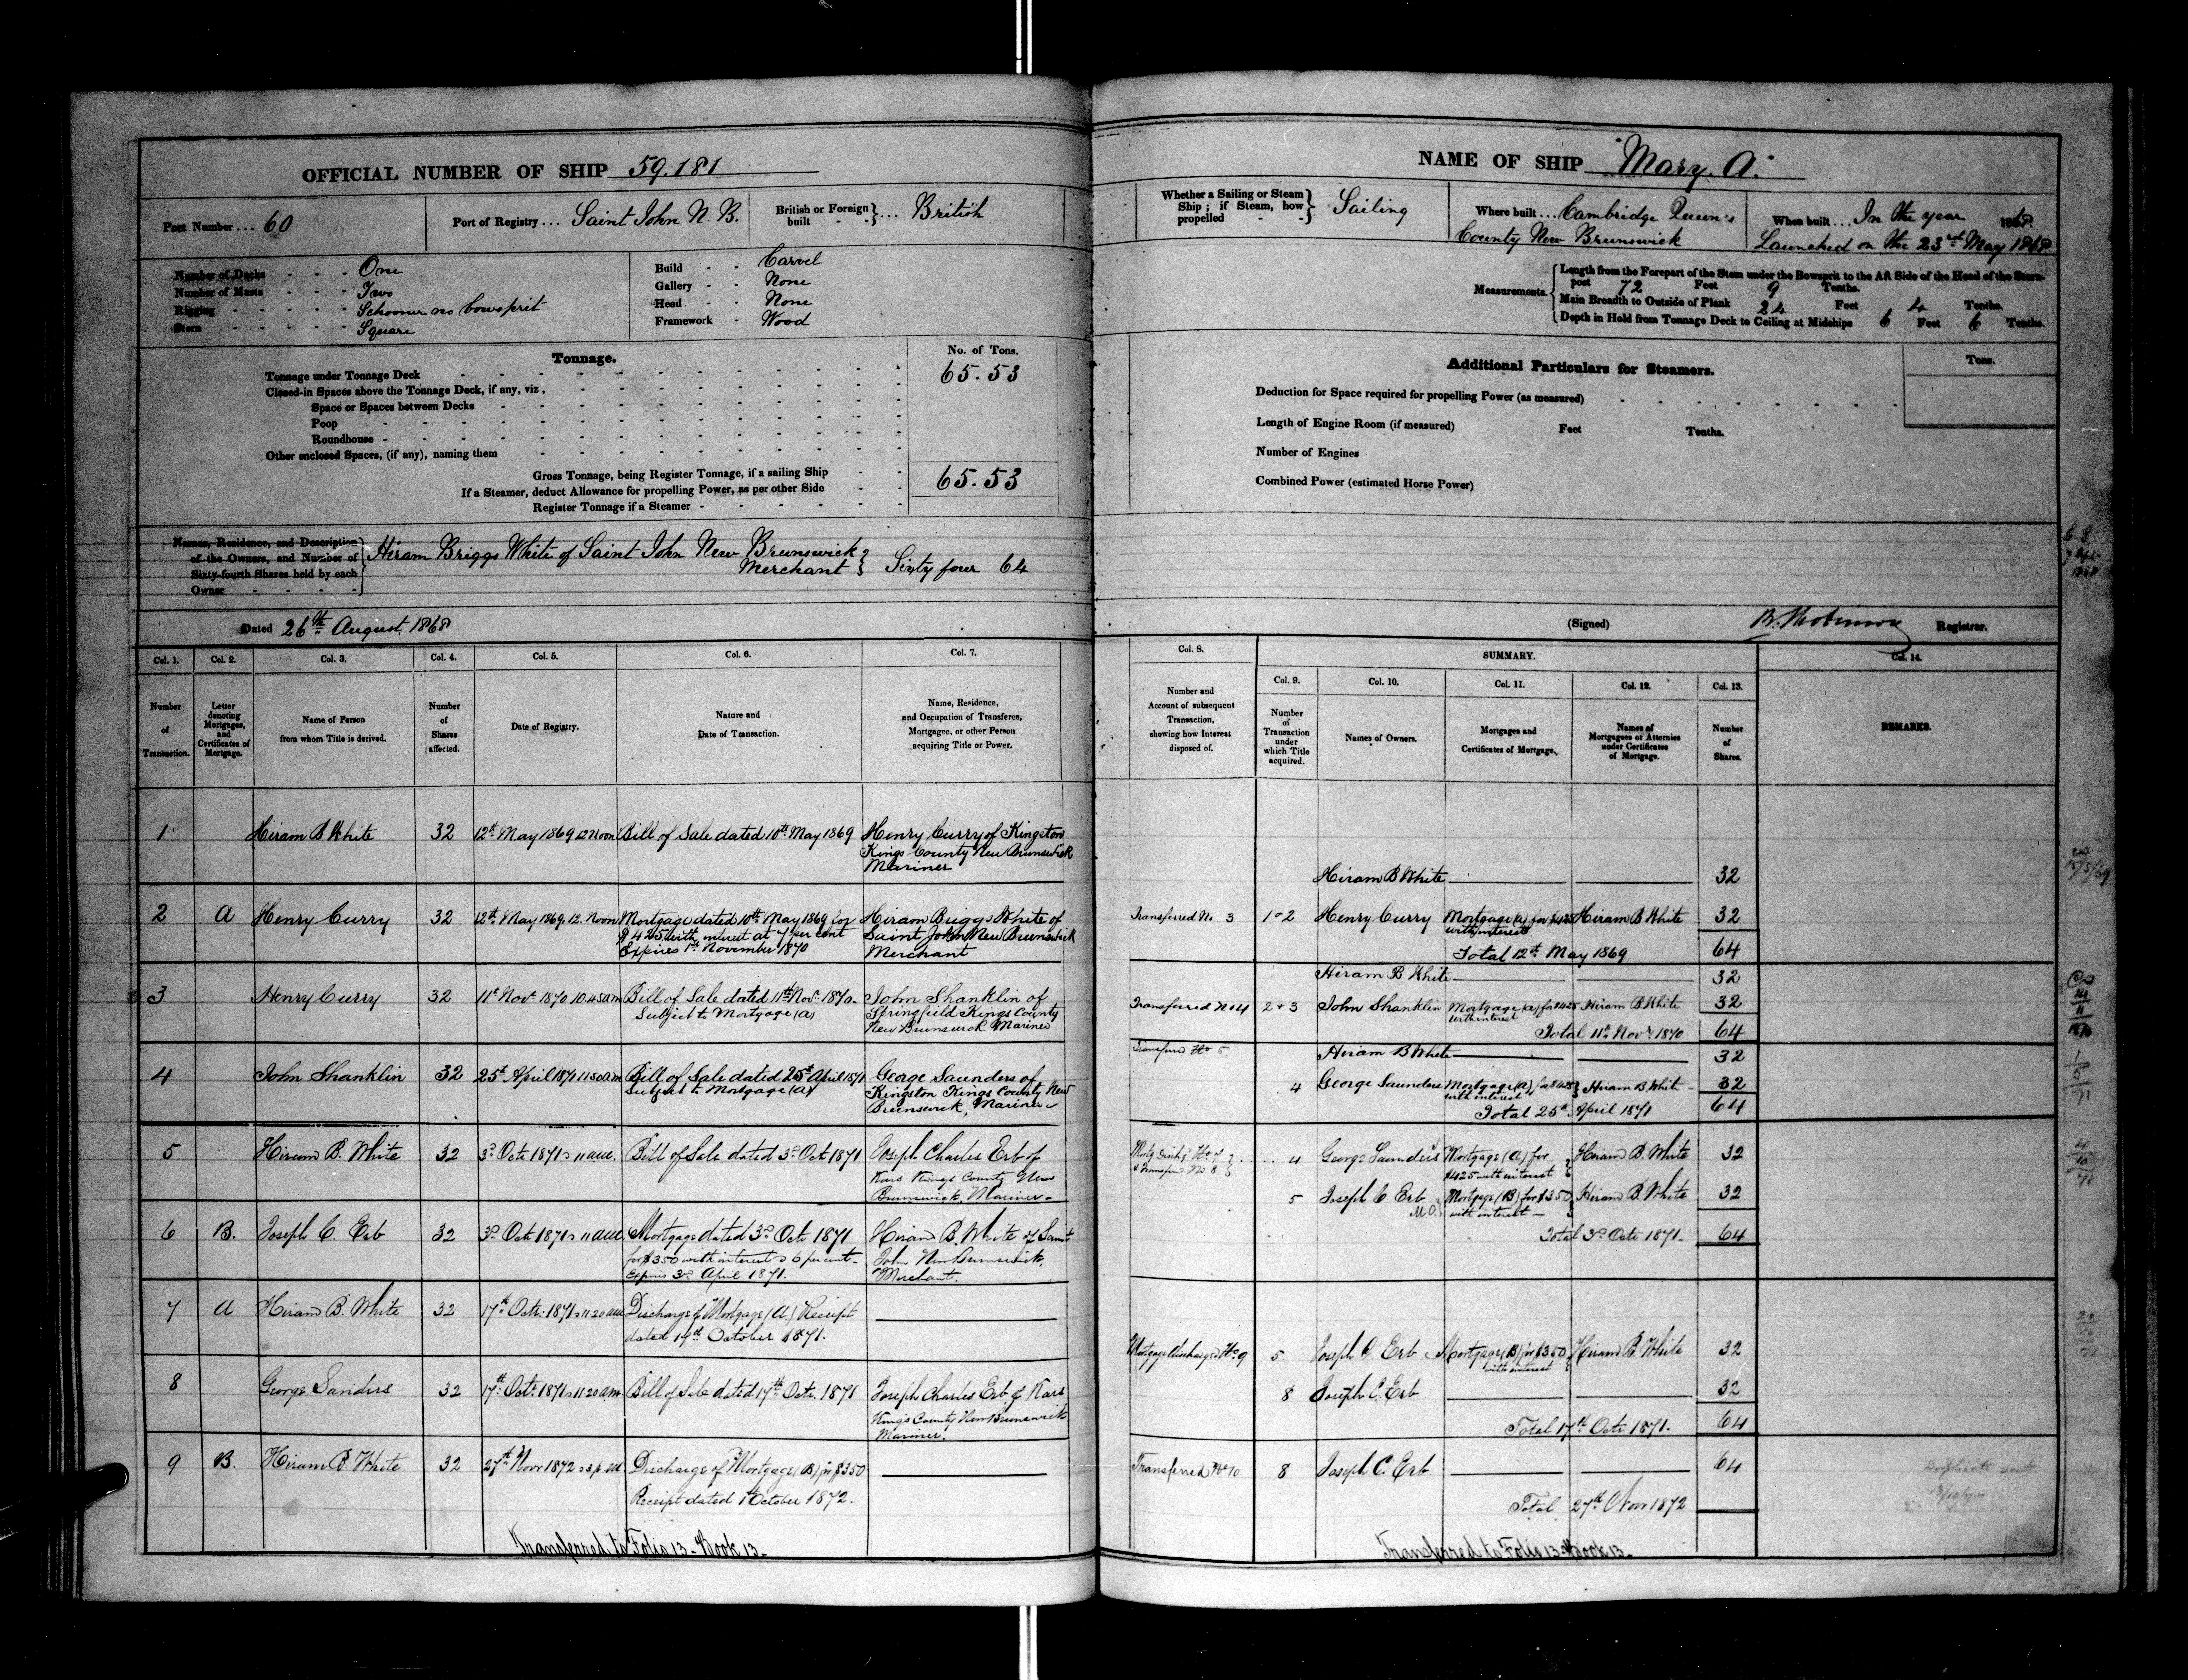 OFFICIAL NUMBER OF SHIP 59.181
Port Number ... 60
Port of Registry ... Saint John N. B.
British or Foreign built - - } ... British
Number of Decks - - - - One
Number of Masts - - - - Two
Rigging - - - - - Schooner no bowsprit
Stern - - - - - Square
Build - - Carvel
Gallery - - None
Head - - None
Framework - Wood
Tonnage.
No. of Tons.
Tonnage under Tonnage Deck 65.53
Closed-in Spaces above the Tonnage Deck, if any, viz.
Space or Spaces between Decks
Poop
Roundhouse
Other enclosed Spaces, (if any), naming them
Gross Tonnage, being Register Tonnage, if a sailing Ship 65.53
If a Steamer, deduct Allowance for propelling Power, as per other Side
Register Tonnage if a Steamer
Names, Residence, and Description of the Owners, and Number of Sixty-fourth Shares held by each Owner
Hiram Briggs White of Saint John New Brunswick
Merchant } Sixty four 64
Dated 26th August 1868
Col. 1. Col. 2. Col. 3. Col. 4. Col. 5. Col. 6. Col. 7.
Number of Transaction.
Letter denoting Mortgages, and Certificates of Mortgage.
Name of Person from whom Title is derived.
Number of Shares affected.
Date of Registry.
Nature and Date of Transaction.
Name, Residence, and Occupation of Transferee, Mortgagee, or other Person acquiring Title or Power.
1 Hiram B White 32 12th May 1869 12 Noon Bill of Sale dated 10th May 1869 Henry Curry of Kingston
Kings County New Brunswick
Mariner
2 A Henry Curry 32 12th May 1869, 12. Noon Mortgage dated 10th May 1869 for Hiram Briggs White of
$425 with interest at 7 per cent Saint John New Brunswick
Expires 1st November 1870 Merchant
3 Henry Curry 32 11th Novr 1870 10.45am Bill of Sale dated 11th Novr 1870 John Shanklin of
Subject to Mortgage (A) Springfield Kings County
New Brunswick Mariner
4 John Shanklin 32 25th April 1871 11.50am Bill of Sale dated 25th April 1871 George Saunders of
Subject to Mortgage (A) Kingston Kings County New
Brunswick, Mariner
5 Hiram B. White 32 3rd Octr 1871 11 am. Bill of Sale dated 3rd Oct 1871 Joseph Charles Erb of
Kars Kings County New
Brunswick, Mariner
6 B. Joseph C. Erb 32 3rd Octr 1871 11 am. Mortgage dated 3rd Octr 1871 Hiram B. White of Saint
for $350 with interest 6 per cent John New Brunswick,
Expires 3rd April 1871. Merchant.
7 A Hiram B. White 32 17th Octr 1871 11.20 am Discharge of Mortgage (A.) Receipt
dated 17th October 1871.
8 George Sanders 32 17th Octr 1871 11.20 am Bill of Sale dated 17th Octr. 1871 Joseph Charles Erb of Kars
Kings County New Brunswick
Mariner.
9 B. Hiram B White 32 27th Novr 1872 Discharge of Mortgage (B) for $350
Receipt dated 1st October 1872.
Transferred to Folio 13 - Book 13 -
NAME OF SHIP "Mary. A."
Whether a Sailing or Steam Ship; if Steam, how propelled - - } Sailing
Where built ... Cambridge Queen's
County New Brunswick
When built ... In the year 1868.
Launched on the 23rd May 1868
Measurements.
Length from the Forepart of the Stem under the Bowsprit to the Aft Side of the Head of the Stern-
post 72 Feet 9 Tenths.
Main Breadth to Outside of Plank 24 Feet 4 Tenths.
Depth in Hold from Tonnage Deck to Ceiling at Midships 6 Feet 6 Tenths.
Additional Particulars for Steamers.
Tons.
Deduction for Space required for propelling Power (as measured)
Length of Engine Room (if measured) Feet Tenths.
Number of Engines
Combined Power (estimated Horse Power)
(Signed) Registrar.
Col. 8. SUMMARY. Col. 14.
Col. 9. Col. 10. Col. 11. Col. 12. Col. 13.
Number and Account of subsequent Transaction, showing how Interest disposed of.
Number of Transaction under which Title acquired.
Names of Owners.
Mortgages and Certificates of Mortgage.
Names of Mortgagees or Attornies under Certificates of Mortgage.
Number of Shares.
REMARKS.
Hiram B White 32
Transferred No 3 1 & 2 Henry Curry Mortgage (A) for $425 Hiram B White 32
with interest
Total 12th May 1869 64
Hiram B White 32
Transferred No 4 2 + 3 John Shanklin Mortgage (A) for $425 Hiram B White 32
with interest
Total 11th Novr 1870 64
Transferred No 5. Hiram B White 32
4 George Saunders Mortgage (A) for $425 } Hiram B. White 32
with interest
Total 25th April 1871 64
Mortg disch'g No 7 & Transferred No 8 } 4 George Saunders Mortgage (A) for Hiram B. White 32
$425 with interest
5 Joseph C Erb Mortgage (B) for $350 Hiram B. White 32
M.O. with interest
Total 3rd Octr 1871. 64
Mortgage Discharged No 9 5 Joseph C. Erb Mortgage (B) for $350 Hiram B. White 32
with interest
8 Joseph C. Erb 32
Total 17th Octr 1871. 64
Transferred No 10 8 Joseph C. Erb 64
Total 27th Novr 1872
Transferred to Folio 13 - Book 13 -
15/5/69